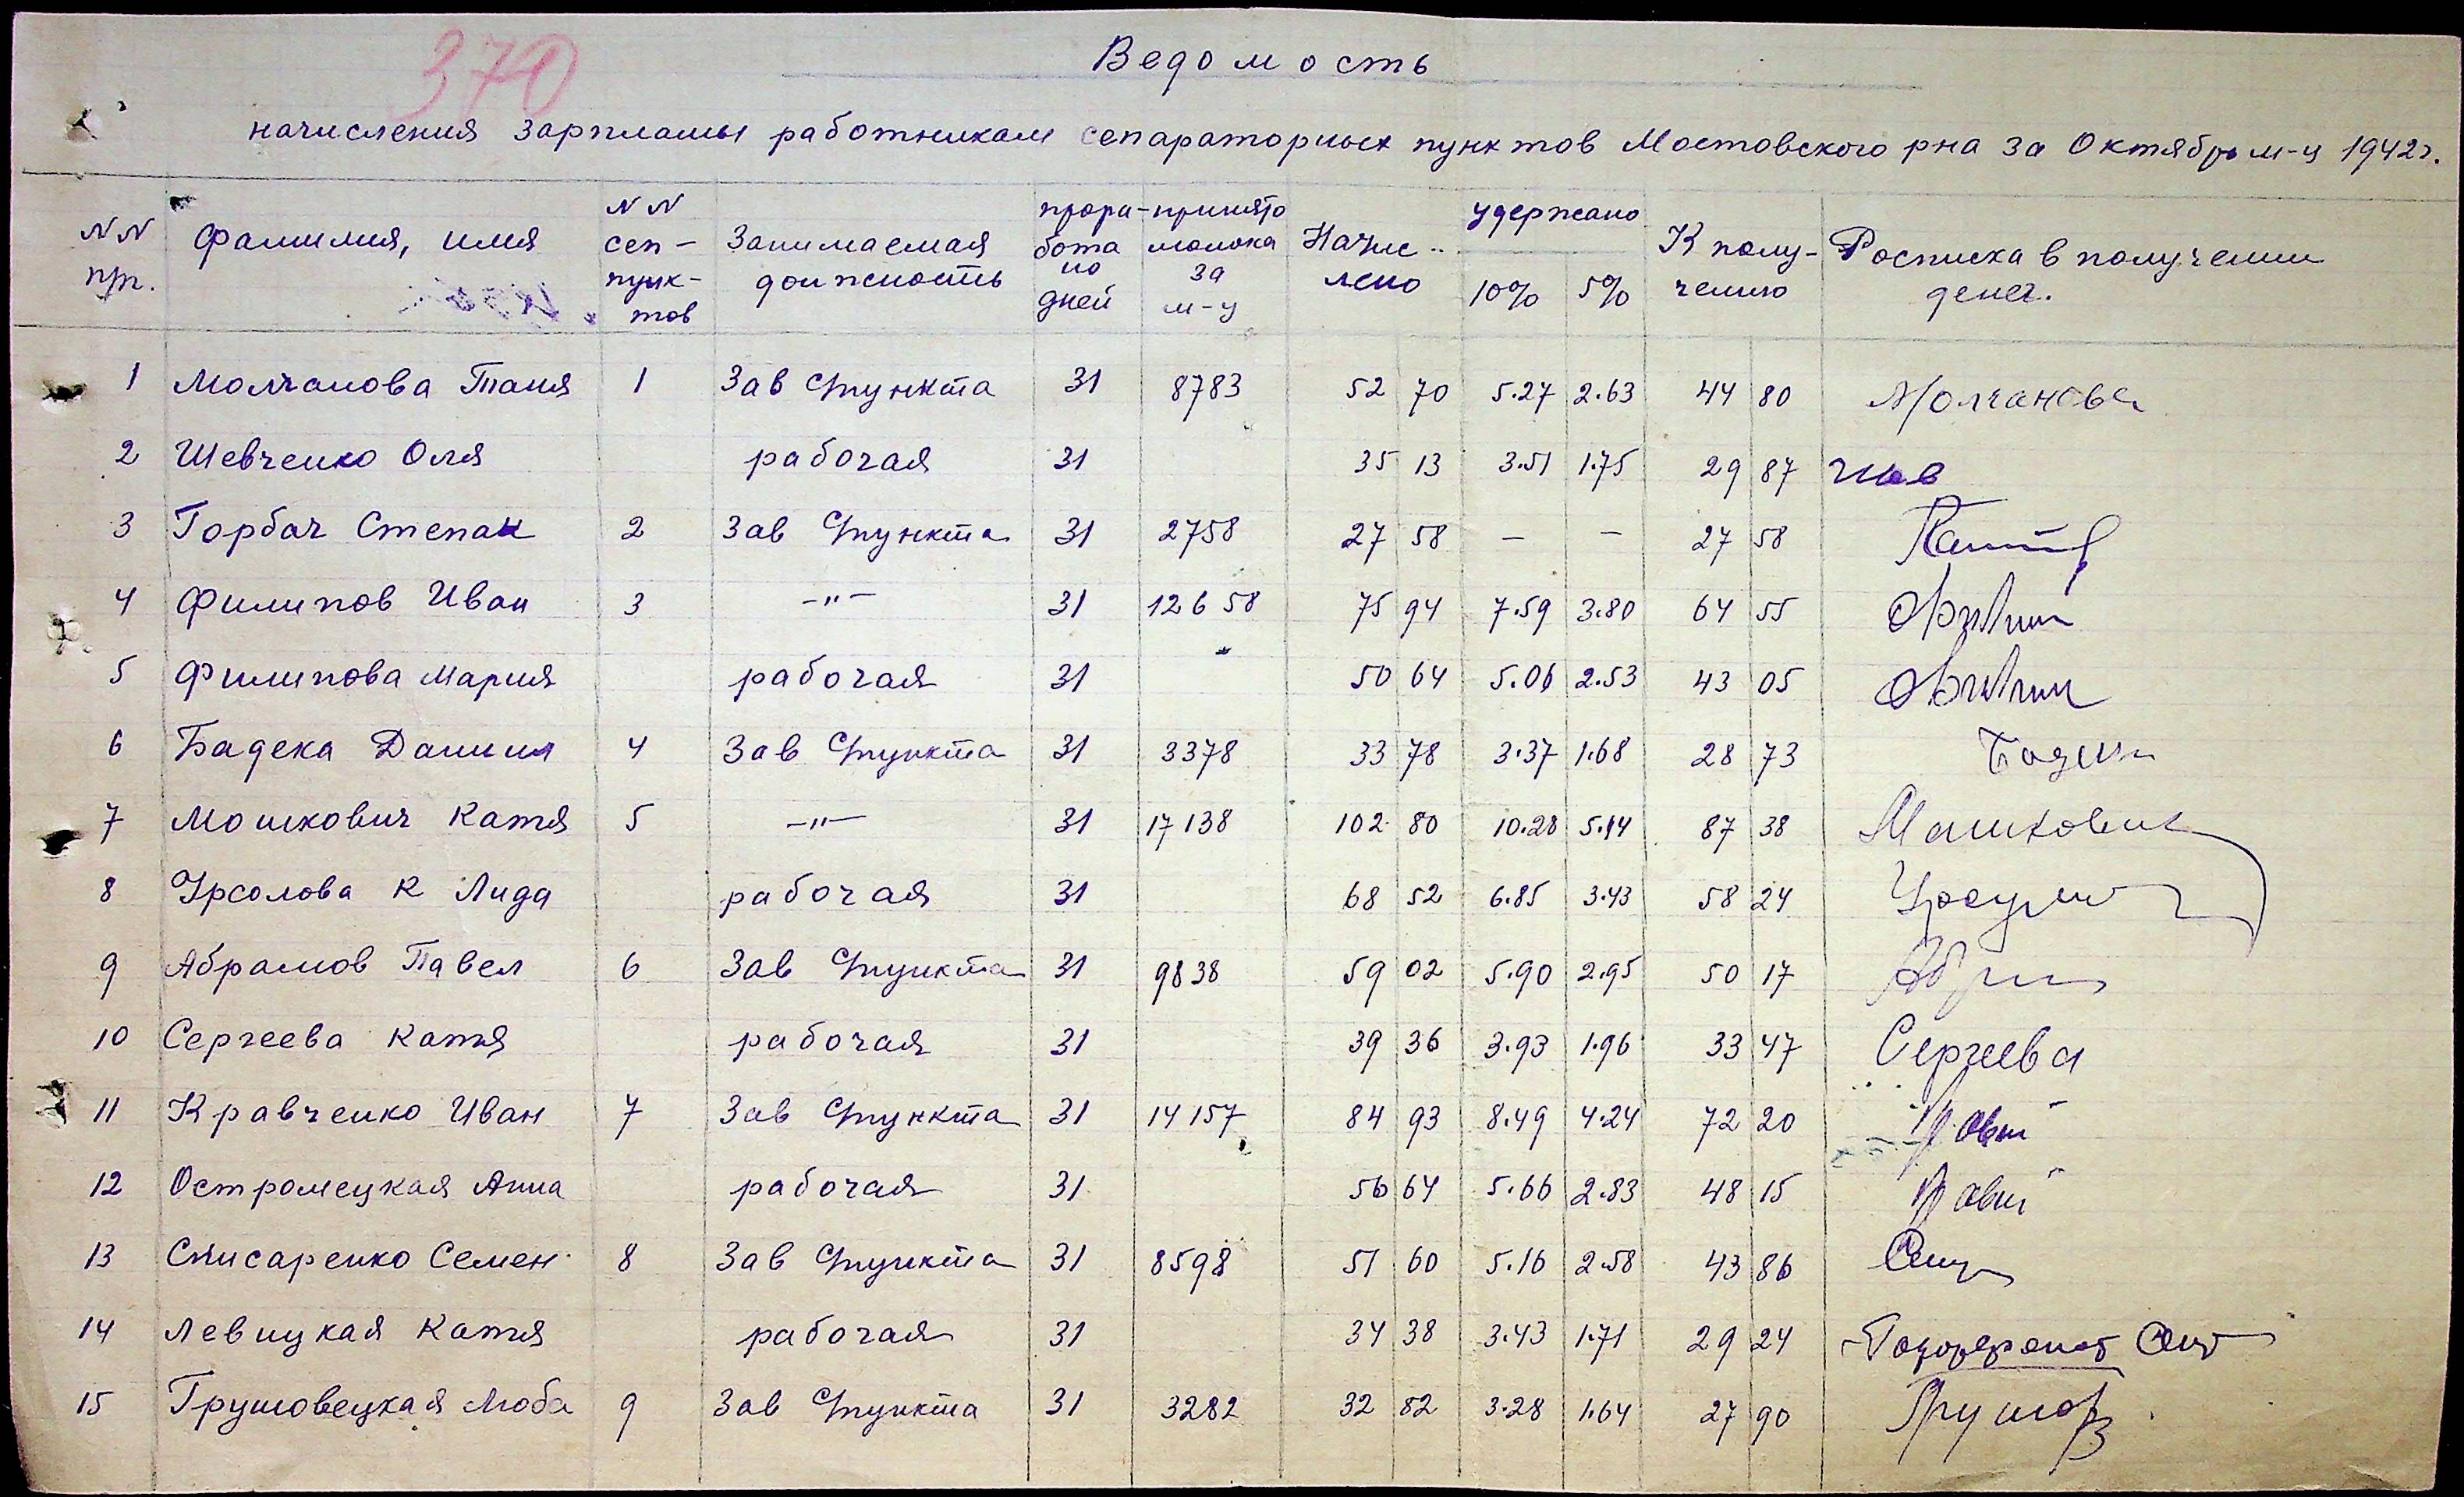 370
Ведомость
начисления зарплаты работникам сепараторных пунктов Мостовского рна за Октябрь м-ц 1942г.
NN пп. Фамилия, имя NN сеп-пунк-тов Занимаемая должность прора-бота но дней принято молока за м-ц Начис-лено удержано 10% 5% К полу-чению Росписка в получении денег.
1 Молчанова Таня 1 Зав Спункта 31 8783 52 70 5.27 2.63 44 80 Молчанова
2 Шевченко Оля рабочая 31 35 13 3.51 1.75 29 87
3 Горбач Степан 2 Зав Спункта 31 2758 27 58 — — 27 58
4 Филипов Иван 3 -"- 31 12658 75 94 7.59 3.80 64 55
5 Филипова Мария рабочая 31 50 64 5.06 2.53 43 05
6 Бадека Данил 4 Зав Спункта 31 3378 33 78 3.37 1.68 28 73
7 Мошкович Катя 5 -"- 31 17138 102 80 10.28 5.14 87 38
8 Урсолова К Лида рабочая 31 68 52 6.85 3.43 58 24
9 Абрамов Павел 6 Зав Спункта 31 9838 59 02 5.90 2.95 50 17
10 Сергеева Катя рабочая 31 39 36 3.93 1.96 33 47 Сергеева
11 Кравченко Иван 7 Зав Спункта 31 14157 84 93 8.49 4.24 72 20
12 Остромецкая Анна рабочая 31 56 64 5.66 2.83 48 15
13 Списаренко Семен 8 Зав Спункта 31 8598 51 60 5.16 2.58 43 86
14 Левицкая Катя рабочая 31 34 38 3.43 1.71 29 24
15 Грушовецкая Люба 9 Зав Спункта 31 3282 32 82 3.28 1.64 27 90